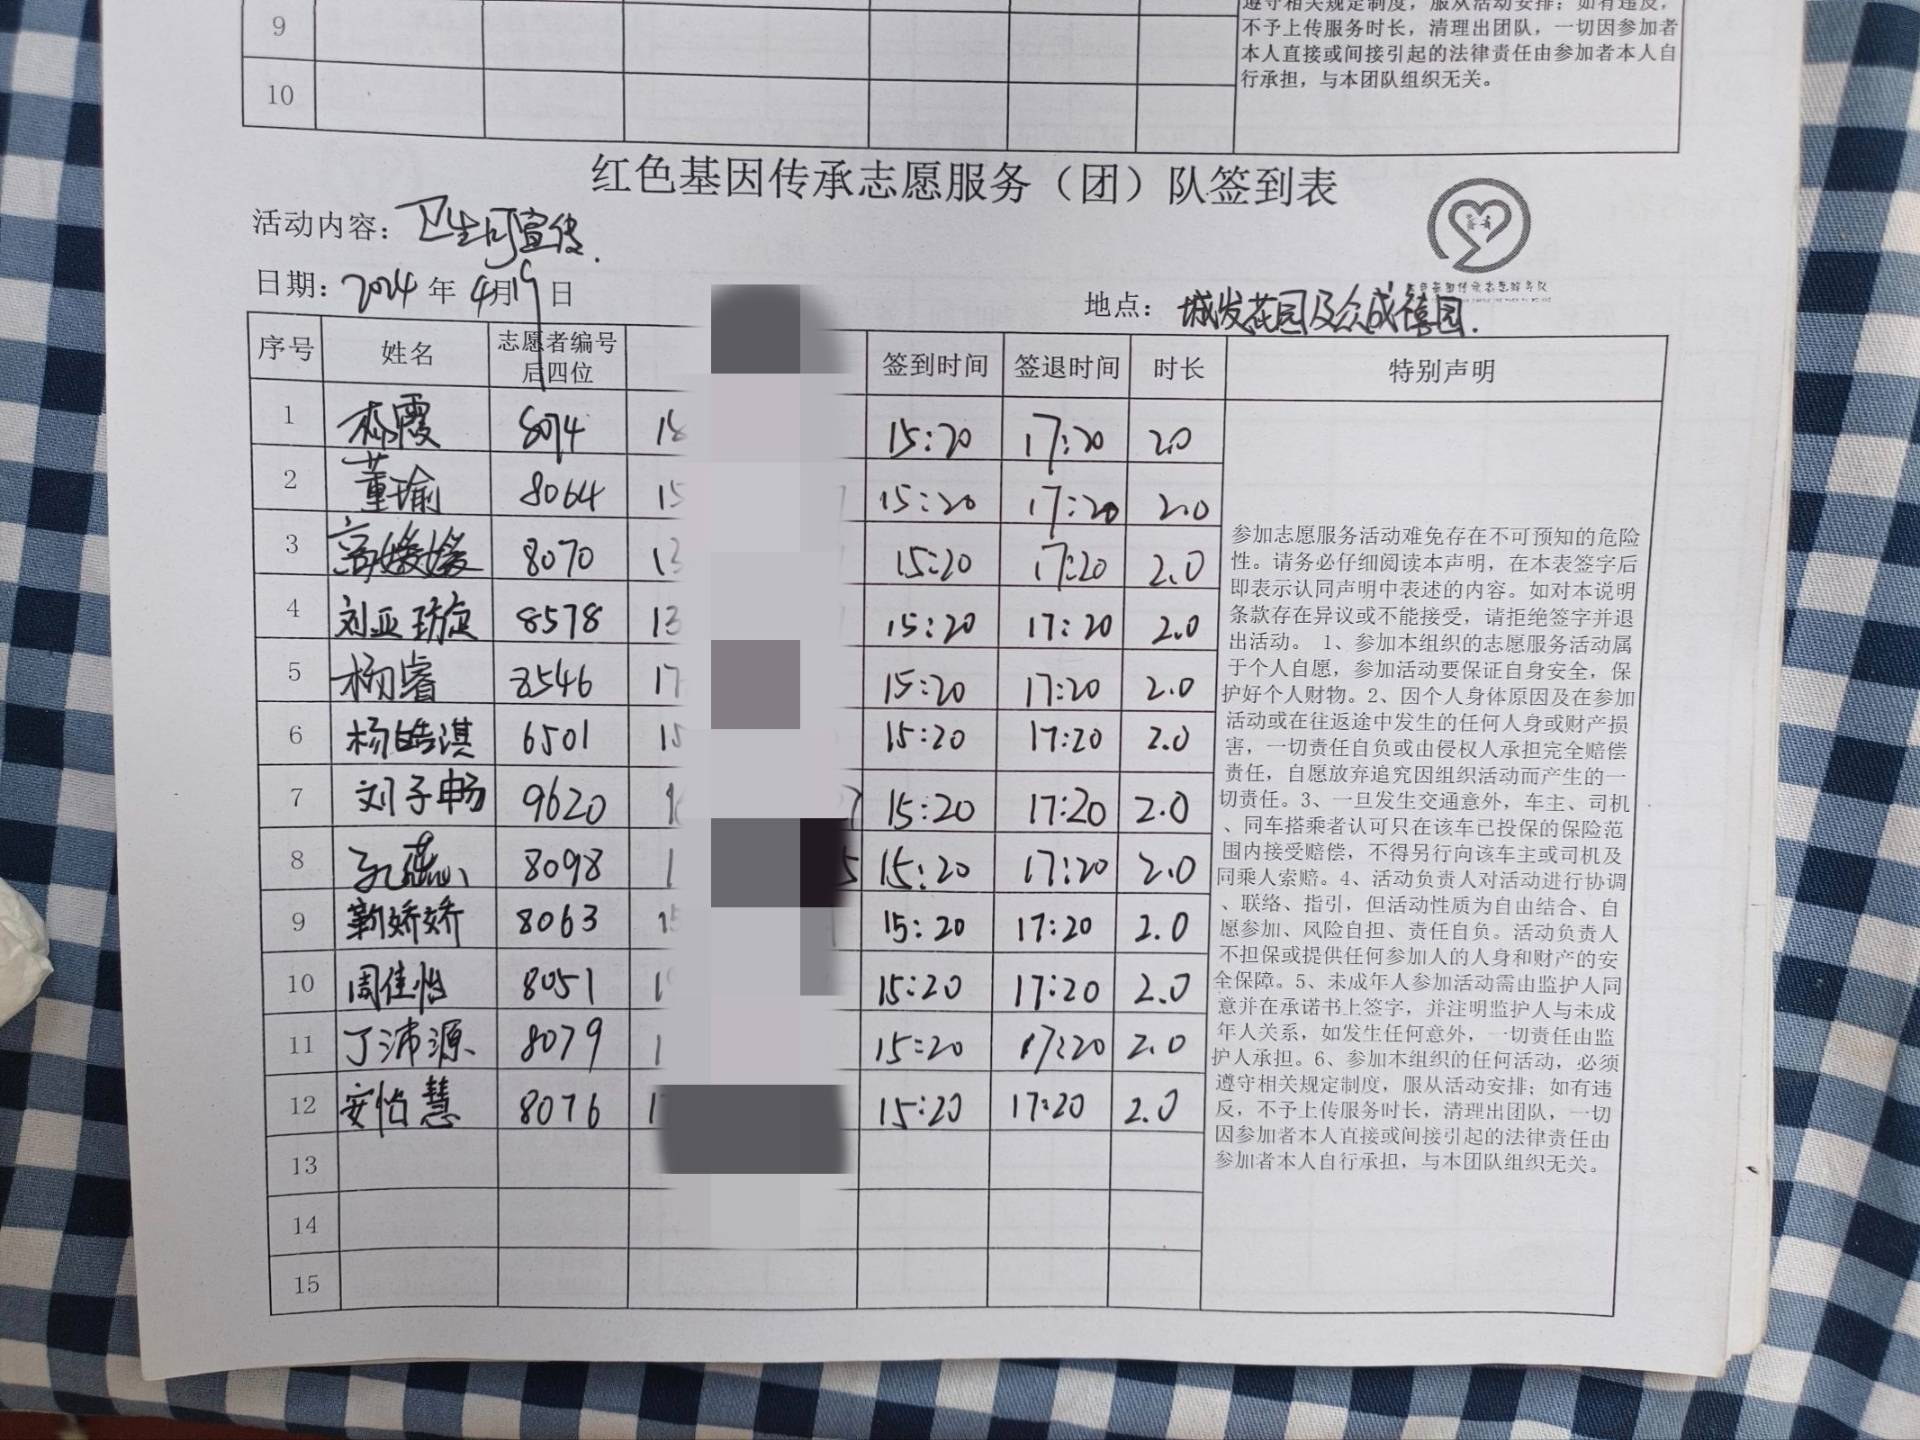 9
10
遵守相关规定制度，服从活动安排；如有违反，
不予上传服务时长，清理出团队，一切因参加者
本人直接或间接引起的法律责任由参加者本人自
行承担，与本团队组织无关。
红色基因传承志愿服务（团）队签到表
活动内容：卫生间宣传.
日期：2024 年 4月19日
地点：城发花园及众成禧园.
序号 姓名 志愿者编号后四位 签到时间 签退时间 时长 特别声明
1 霞 8074 18 15:20 17:20 2.0
2 董瑜 8064 15 15:20 17:20 2.0
3 高媛媛 8070 13 15:20 17:20 2.0
4 刘亚璇 8578 13 15:20 17:20 2.0
5 杨睿 8546 17 15:20 17:20 2.0
6 杨皓淇 6501 15 15:20 17:20 2.0
7 刘子畅 9620 1 15:20 17:20 2.0
8 孔燕 8098 1 5 15:20 17:20 2.0
9 靳娇娇 8063 15 15:20 17:20 2.0
10 周佳怡 8051 1 15:20 17:20 2.0
11 丁沛源 8079 1 15:20 17:20 2.0
12 安怡慧 8076 1 15:20 17:20 2.0
13
14
15
参加志愿服务活动难免存在不可预知的危险
性。请务必仔细阅读本声明，在本表签字后
即表示认同声明中表述的内容。如对本说明
条款存在异议或不能接受，请拒绝签字并退
出活动。 1、参加本组织的志愿服务活动属
于个人自愿，参加活动要保证自身安全，保
护好个人财物。2、因个人身体原因及在参加
活动或在往返途中发生的任何人身或财产损
害，一切责任自负或由侵权人承担完全赔偿
责任，自愿放弃追究因组织活动而产生的一
切责任。3、一旦发生交通意外，车主、司机
、同车搭乘者认可只在该车已投保的保险范
围内接受赔偿，不得另行向该车主或司机及
同乘人索赔。4、活动负责人对活动进行协调
、联络、指引，但活动性质为自由结合、自
愿参加、风险自担、责任自负。活动负责人
不担保或提供任何参加人的人身和财产的安
全保障。5、未成年人参加活动需由监护人同
意并在承诺书上签字，并注明监护人与未成
年人关系，如发生任何意外，一切责任由监
护人承担。6、参加本组织的任何活动，必须
遵守相关规定制度，服从活动安排；如有违
反，不予上传服务时长，清理出团队，一切
因参加者本人直接或间接引起的法律责任由
参加者本人自行承担，与本团队组织无关。